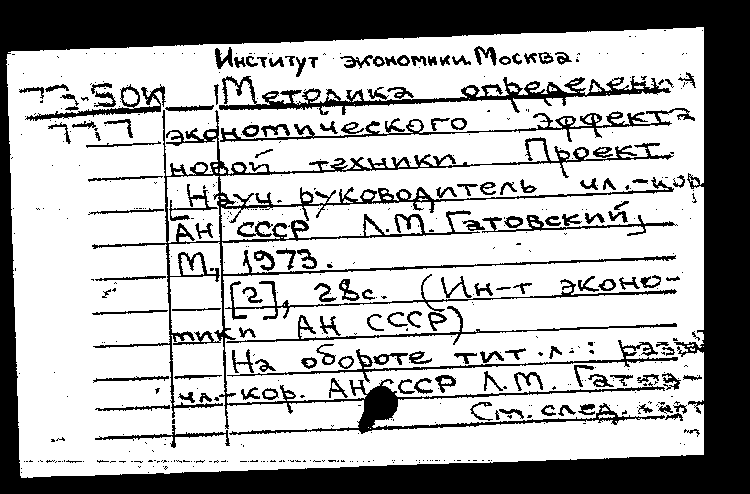 Институт экономики. Москва.
73-50К Методика определения
777 экономического эффекта
новой техники. Проект.
[Науч. руководитель чл.-кор.
АН СССР Л.М. Гатовский]
М., 1973.
[2], 28с. (Ин-т эконо-
мики АН СССР).
На обороте тит.л.: разраб
чл.-кор. АН СССР Л.М. Гатов-
См. след. карт